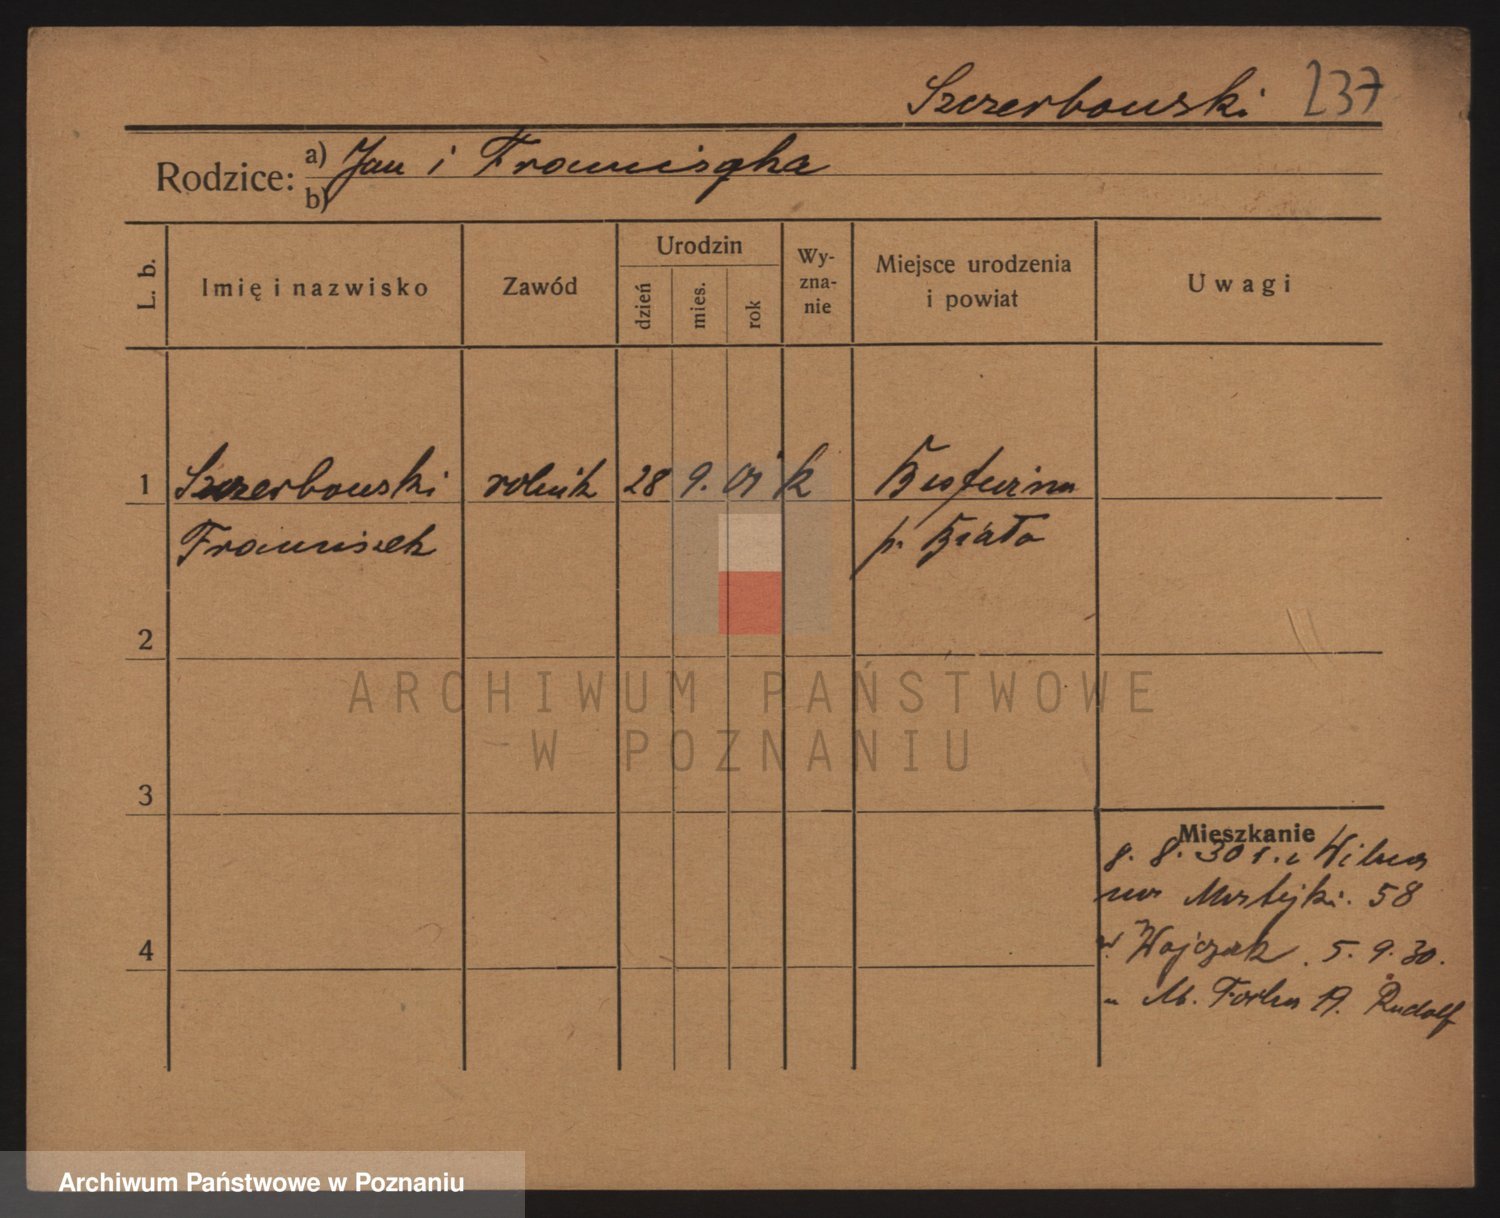 Szczerbowski 237
Rodzice: a) Jan i Franciszka
b)
L. b.
Imię i nazwisko
Zawód
Urodzin
dzień
mies.
rok
Wy-
zna-
nie
Miejsce urodzenia
i powiat
Uwagi
1 Szczerbowski rolnik 28 9. 01 k
Franciszek p. Biała
2
ARCHIWUM PAŃSTWOWE
W POZNANIU
3
Mieszkanie
8. 8. 30 r. z Wilna
na Mostejki. 58
w. Wojczak. 5. 9. 30.
M. 19. Rudolf
4
Archiwum Państwowe w Poznaniu